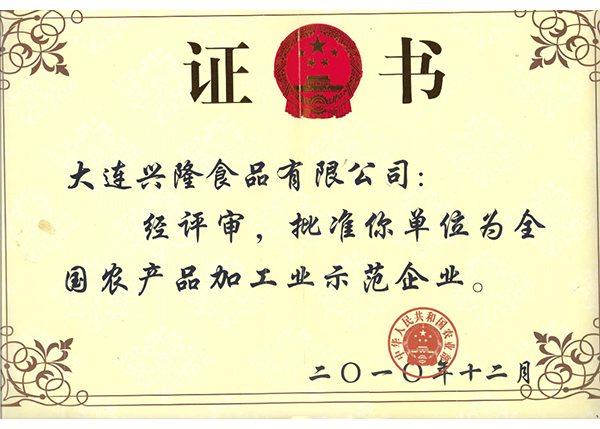 证书
大连兴隆食品有限公司：
经评审，批准你单位为全
国农产品加工业示范企业。
中华人民共和国农业部
二〇一〇年十二月